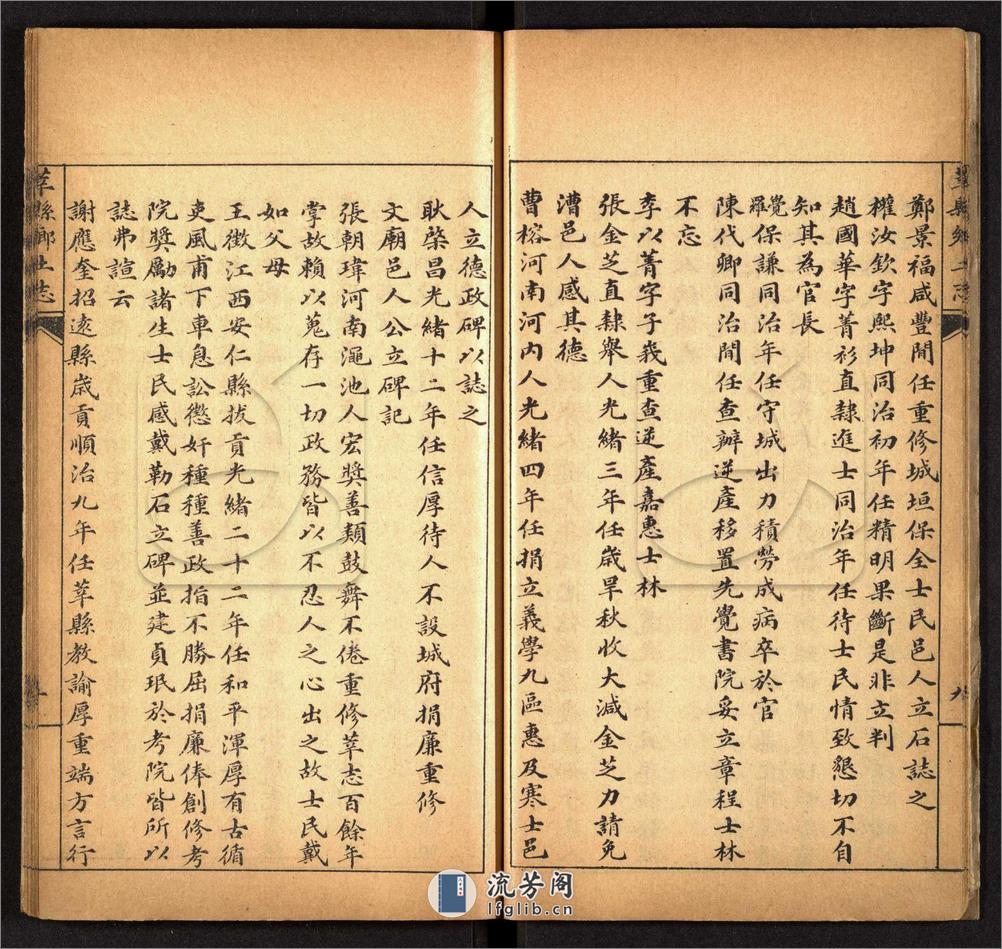 鄭景福咸豐間任重修城垣保全士民邑人立石誌之
權汝欽字熙坤同治初年任精明果斷是非立判
趙國華字菁衫直隸進士同治年任待士民情致懇切不自
知其為官長
覺羅保謙同治年任守城出力積勞成病卒於官
陳代卿同治間任查辨逆產移置先覺書院妥立章程士林
不忘
李以菁字子義重查逆產嘉惠士林
張金芝直隸舉人光緒三年任歲旱秋收大減金芝力請免
漕邑人感其德
曹榕河南河內人光緒四年任捐立義學九區惠及寒士邑
人立德政碑以誌之
耿榮昌光緒十二年任信厚待人不設城府捐廉重修
文廟邑人公立碑記
張朝瑋河南澠池人宏獎善類鼓舞不倦重修莘志百餘年
掌故賴以蒐存一切政務皆以不忍人之心出之故士民戴
如父母
王徵江西安仁縣拔貢光緒二十二年任和平渾厚有古循
吏風甫下車息訟懲奸種種善政指不勝屈捐廉俸創修考
院獎勵諸生士民感戴勒石立碑並建貞珉於考院皆所以
誌弗諼云
謝應奎招遠縣歲貢順治九年任莘縣教諭厚重端方言行
莘縣鄉土志
流芳阁
lfglib.cn